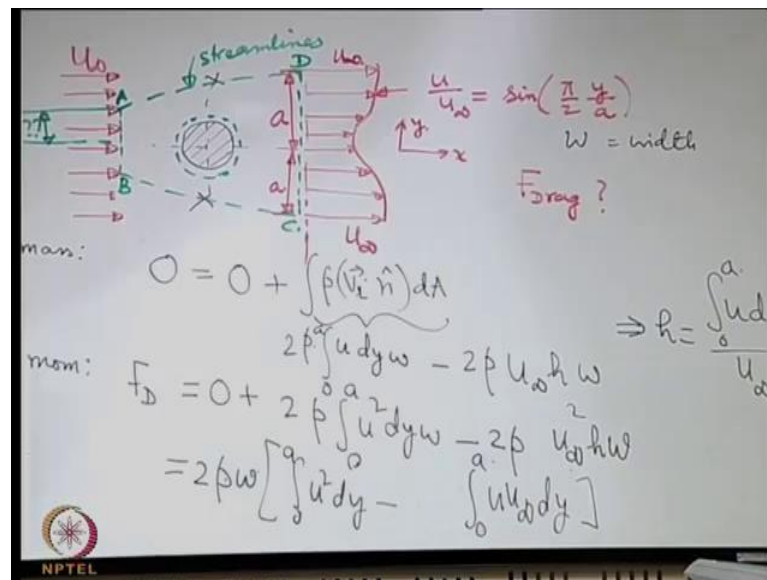 U∞ streamlines D U∞
A a u/U∞ = sin(π/2 y/a)
?? y w = width
B a x
F Drag ?
C U∞
mass: 0 = 0 + ∫ρ(V⃗r·n̂)dA
2ρ∫₀ᵃ u dy w − 2ρ U∞ h w ⇒ h = ∫₀ᵃ u d / U∞
mom: F_D = 0 + 2ρ∫₀ᵃ u² dy w − 2ρ U∞² h w
= 2ρw [∫₀ᵃ u² dy − ∫₀ᵃ u U∞ dy]
NPTEL